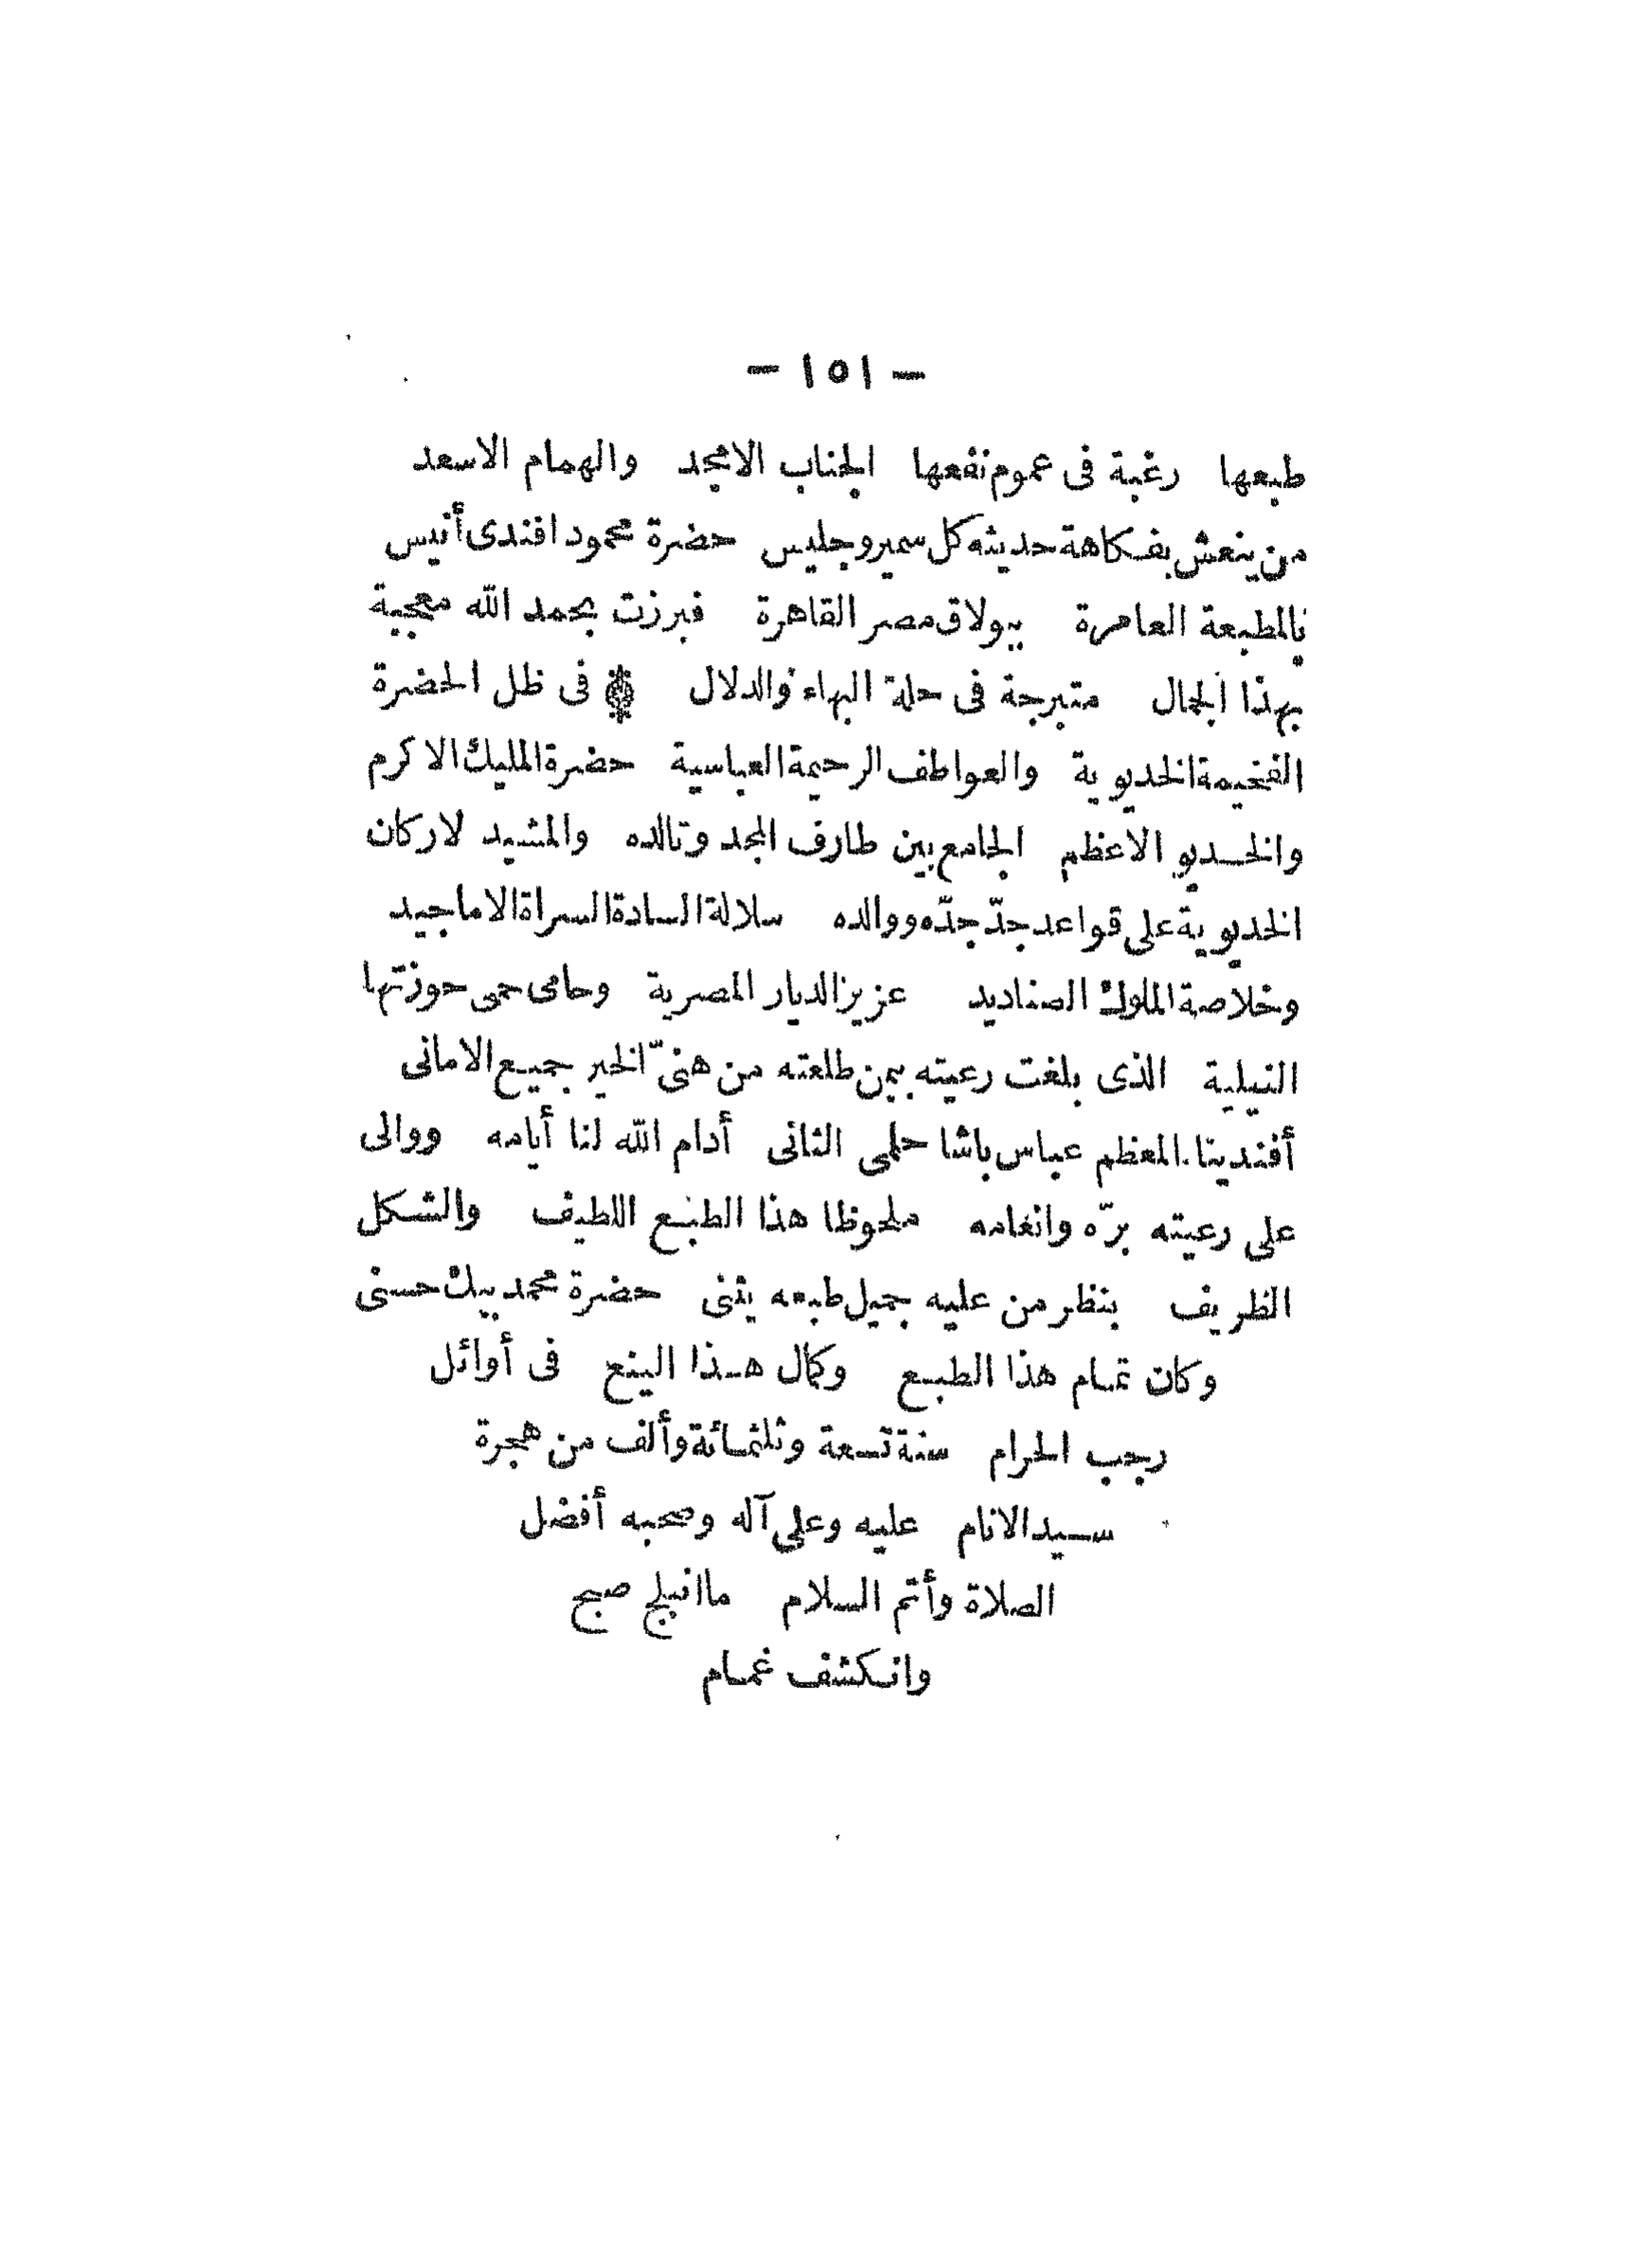 - ١٥١ -
طبعها رغبة فى عموم نفعها الجناب الامجد والهمام الاسعد
من ينعش بفكاهة حديثه كل سمير وجليس حضرة محمود افندى أنيس
بالمطبعة العامرة ببولاق مصر القاهرة فبرزت بحمد الله معجبة
بهذا الجمال متبرجة فى حلة البهاء والدلال ۞ فى ظل الحضرة
الفخيمة الخديوية والعواطف الرحيمة العباسية حضرة المليك الاكرم
والخديو الاعظم الجامع بين طارف المجد وتالده والمشيد لاركان
الخديوية على قواعد جدّ جدّه ووالده سلالة السادة السراة الاماجيد
وخلاصة الملوك الصناديد عزيز الديار المصرية وحامى حمى حوزتها
النيلية الذى بلغت رعيته بيمن طلعته من هنىّ الخير جميع الامانى
أفندينا المعظم عباس باشا حلمى الثانى أدام الله لنا أيامه ووالى
على رعيته برّه وانعامه ملحوظا هذا الطبع اللطيف والشكل
الظريف بنظر من عليه جميل طبعه يثنى حضرة محمد بيك حسنى
وكان تمام هذا الطبع وكمال هذا الينع فى أوائل
رجب الحرام سنة تسعة وثلثمائة وألف من هجرة
سيد الانام عليه وعلى آله وصحبه أفضل
الصلاة وأتم السلام ما انبلج صبح
وانكشف غمام